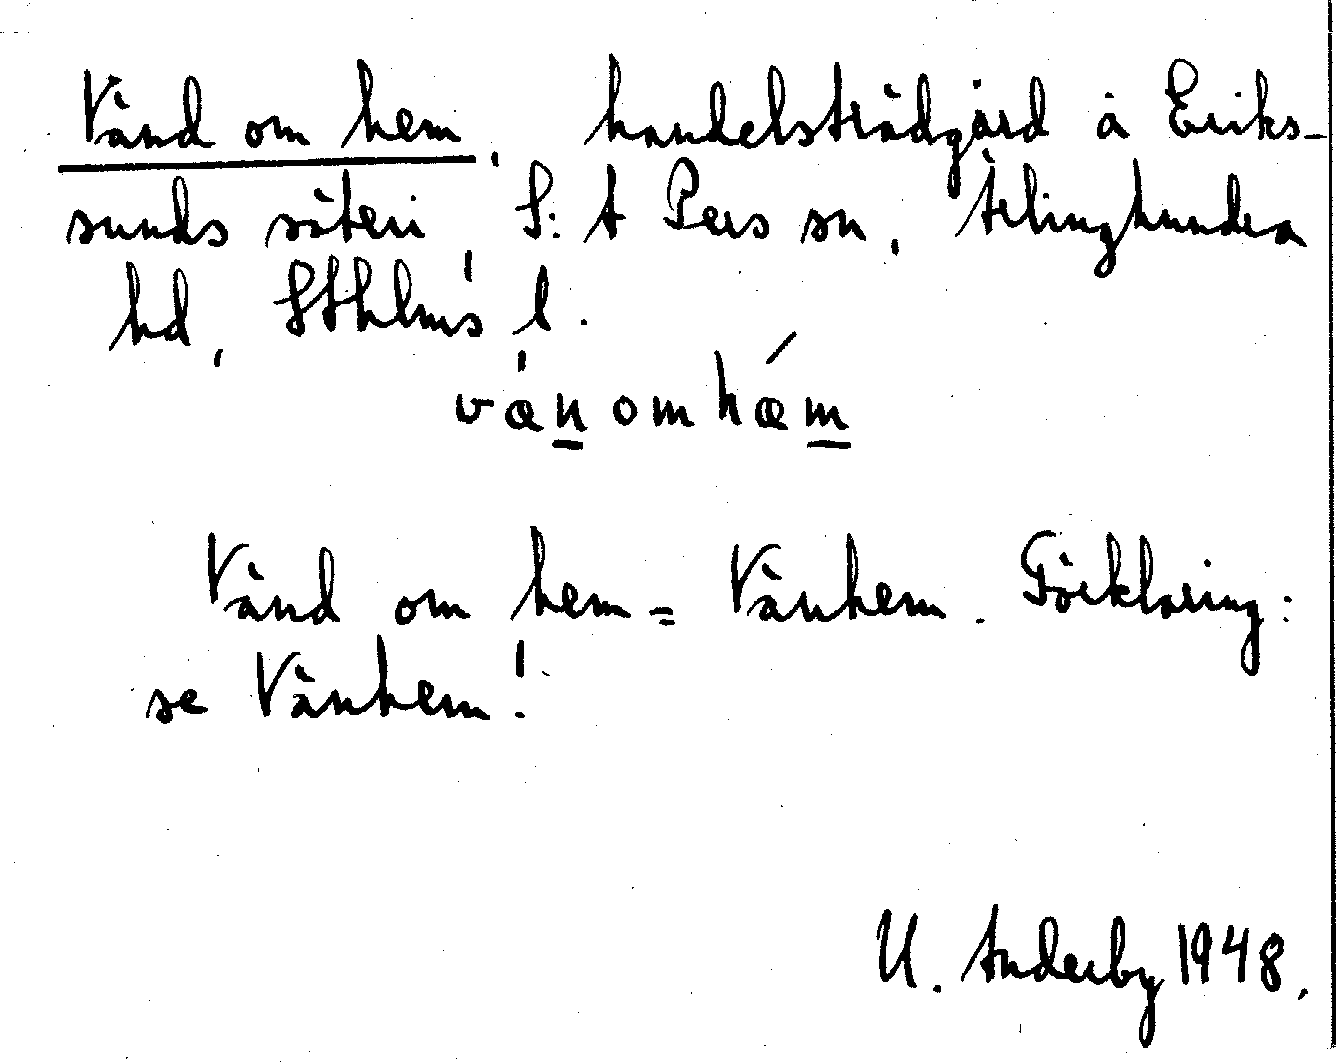 Vänd om hem, handelsträdgård å Eriks-
sunds säteri, S:t Pers sn, Ärlinghundra
hd, Sthlms l.
vä́n om hǽm
Vänd om hem = Vänhem. Förklaring:
se Vänhem!
U. Anderby 1948.